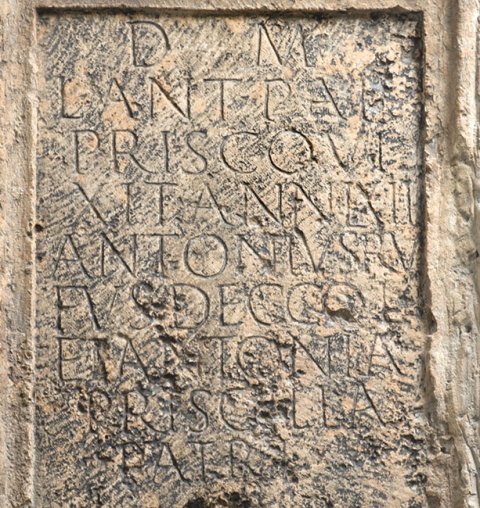 D M
L ANT PAP
PRISCO VI
XIT ANN LXII
ANTONIVS RV
FVS DEC C C C E
ET ANTONIA
PRISCILLA
PATRI